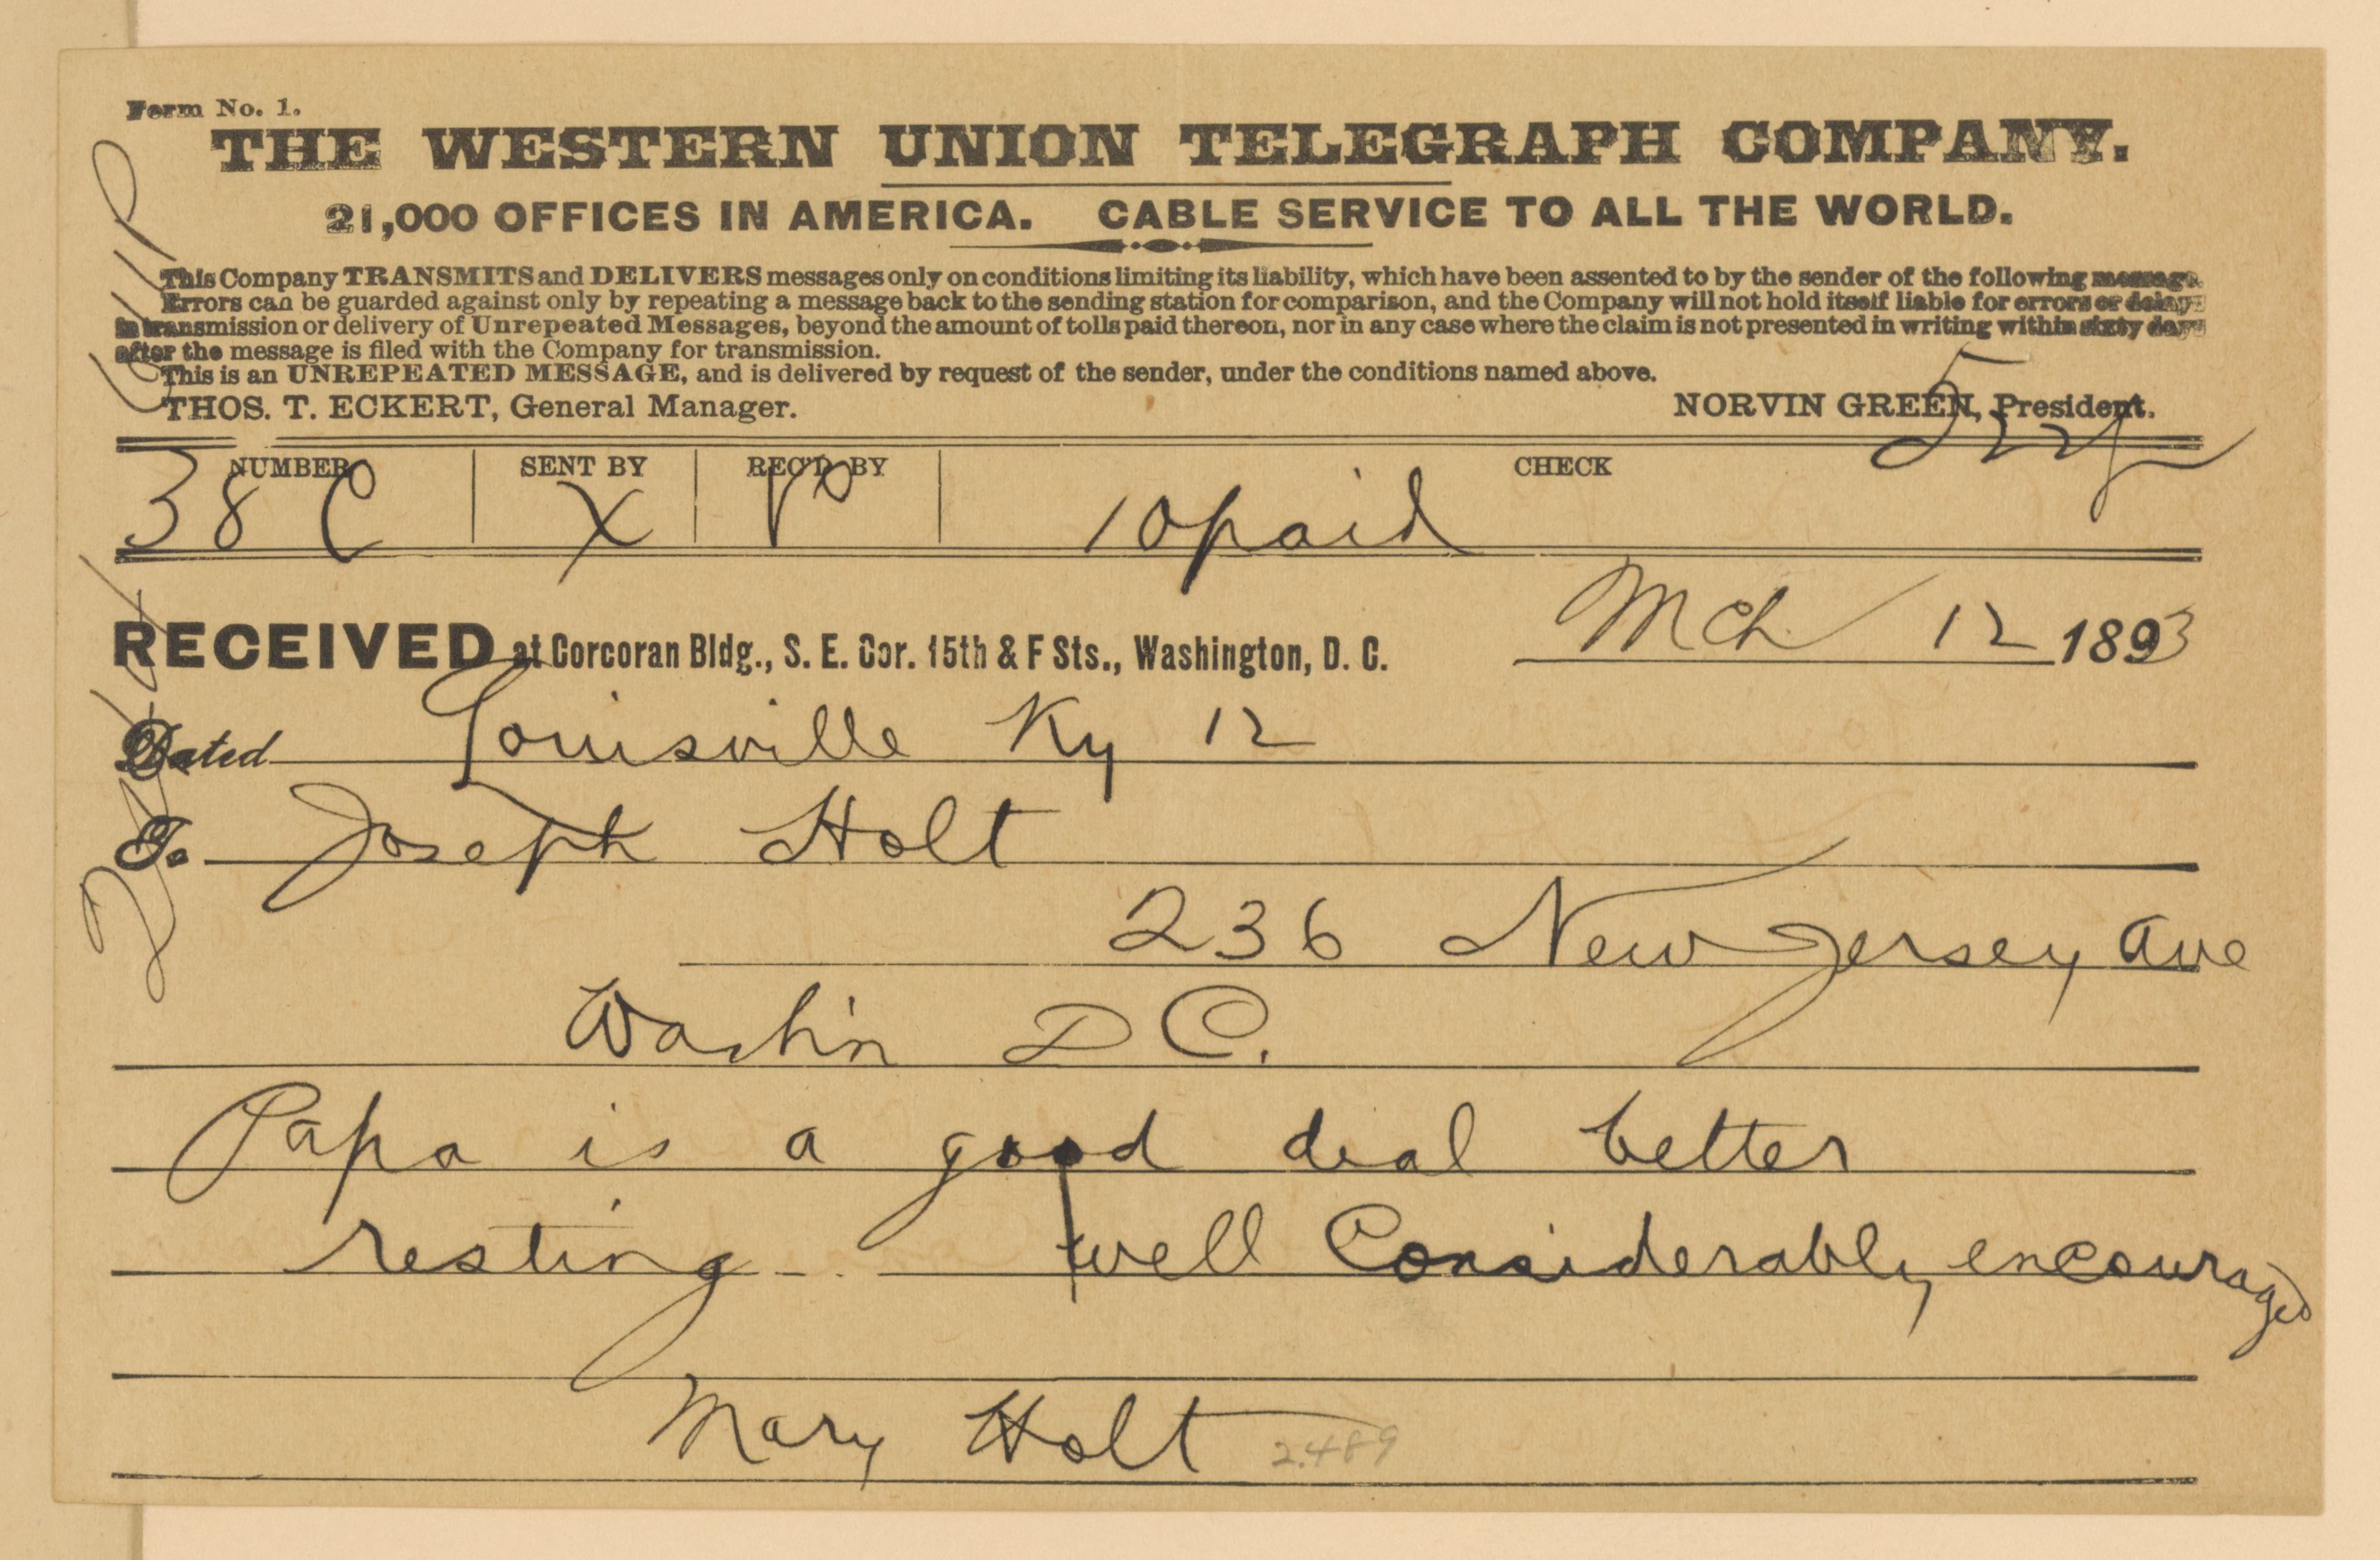 Form No. 1.
THE WESTERN UNION TELEGRAPH COMPANY.
21,000 OFFICES IN AMERICA. CABLE SERVICE TO ALL THE WORLD.
This Company TRANSMITS and DELIVERS messages only on conditions limiting its liability, which have been assented to by the sender of the following message.
Errors can be guarded against only by repeating a message back to the sending station for comparison, and the Company will not hold itself liable for errors or delays
in transmission or delivery of Unrepeated Messages, beyond the amount of tolls paid thereon, nor in any case where the claim is not presented in writing within sixty days
after the message is filed with the Company for transmission.
This is an UNREPEATED MESSAGE, and is delivered by request of the sender, under the conditions named above.
THOS. T. ECKERT, General Manager. NORVIN GREEN, President.
NUMBER SENT BY REC'D BY CHECK
38 C X 10 paid
RECEIVED at Corcoran Bldg., S. E. Cor. 15th & F Sts., Washington, D. C. Mch 12 1893
Dated Louisville Ky 12
To Joseph Holt
236 New Jersey ave
Wash'n D C.
Papa is a good deal better
resting well Considerably encouraged
Mary Holt 2489